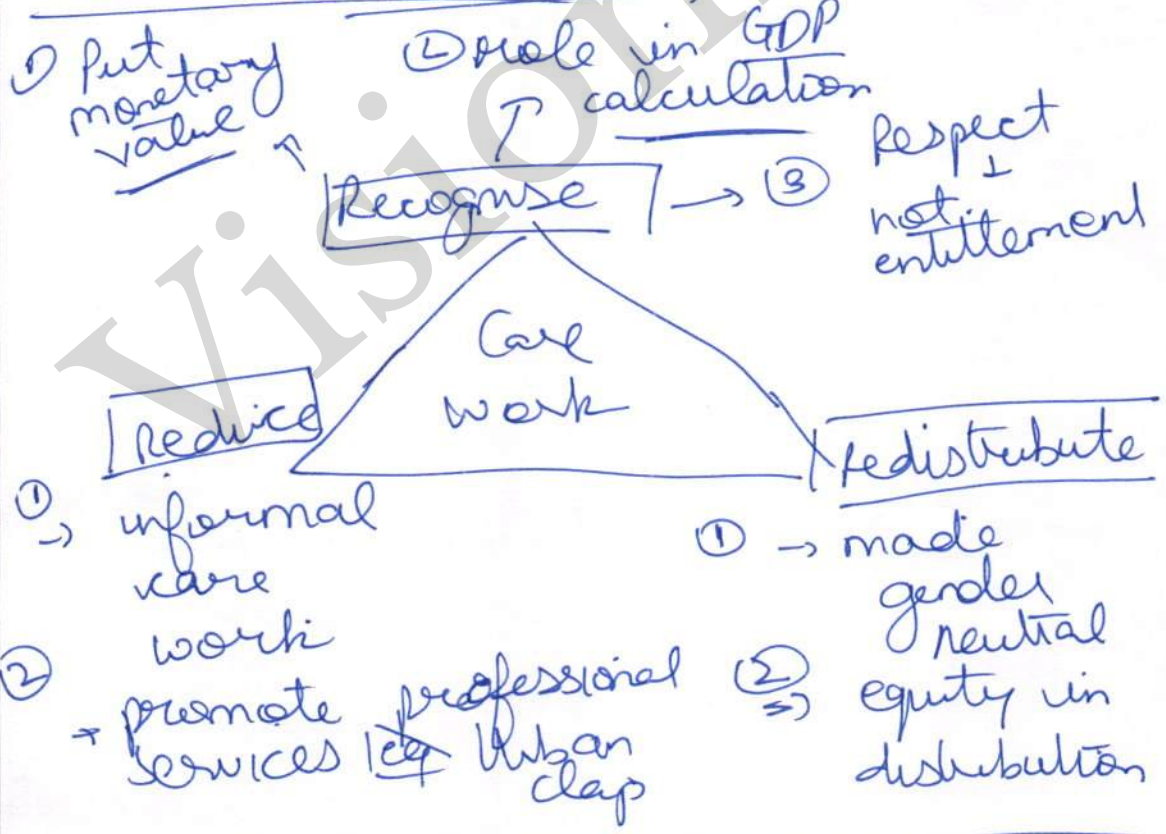 ① Put
monetary
value
② role in GDP
calculation
Recognise
→ ③
Respect
not
entitlement
Care
work
Reduce
① → informal
care
work
② → promote professional
services eg Urban
clap
Redistribute
① → made
gender
neutral
② → equity in
distribution
Vision